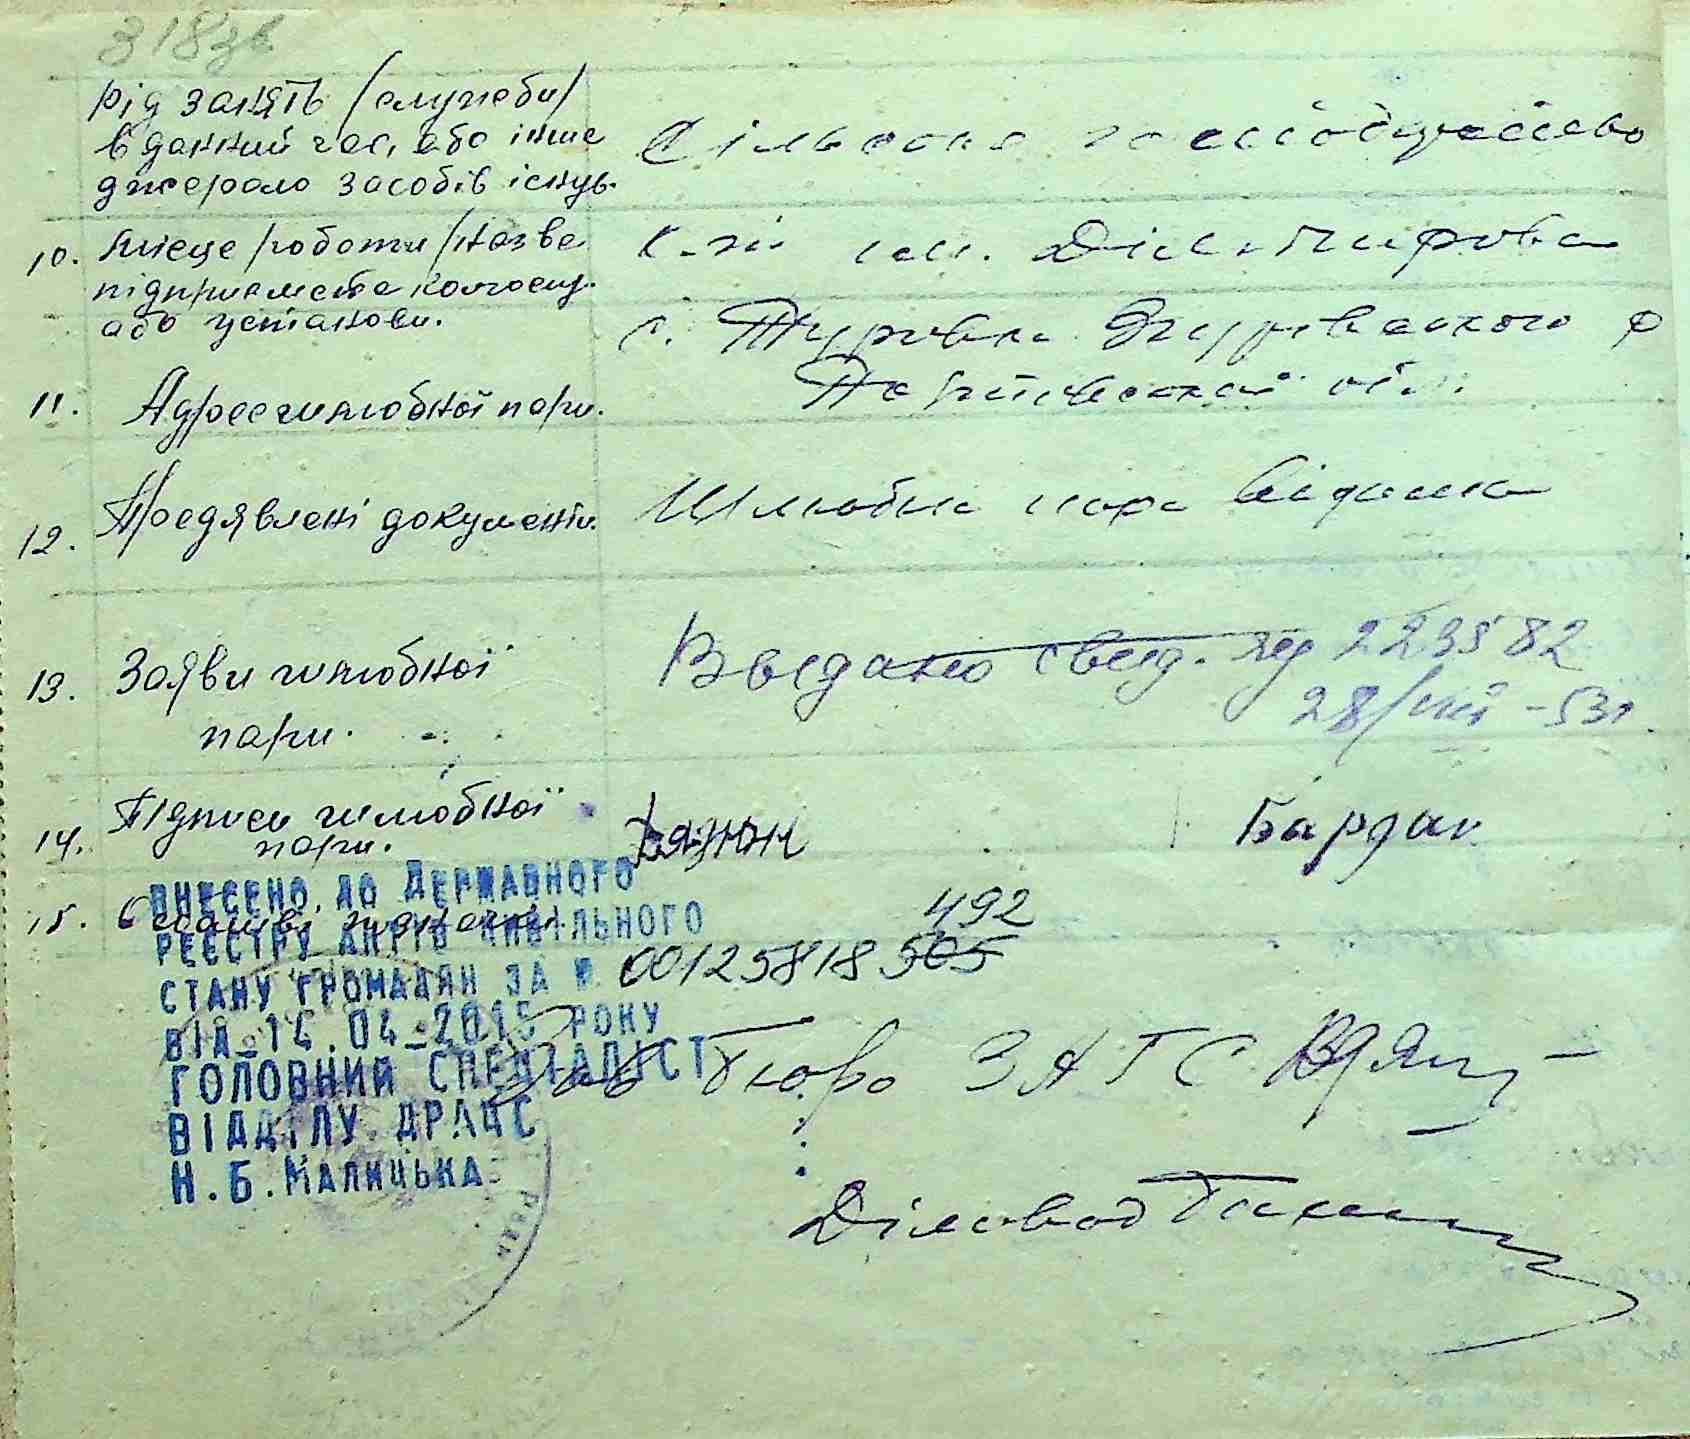 318зв
рід занять /служби/
в данний час, або інше
джерело засобів існув.
Сільське господарство
10. Місце роботи /назва
підприємства колгоспу
або установи.
К-зп ім. Димитрова
с. Турівка Згурівського р
Полтавської обл.
11. Адрес шлюбної пари.
12. Предявлені документи.
Шлюбна пара відома
13. Заяви шлюбної
пари.
Выдано свид. 223582
28/VIII-53г.
14. Підписи шлюбної
пари.
Бардак
15. Особливі
ВНЕСЕНО ДО ДЕРЖАВНОГО
РЕЄСТРУ АКТІВ ЦИВІЛЬНОГО
СТАНУ ГРОМАДЯН ЗА №
492
00125818 505
ВІД 14.04 2015 РОКУ
ГОЛОВНИЙ СПЕЦІАЛІСТ
ВІДДІЛУ ДРАЦС
Н.Б.МАЛИЦЬКА
Зав бюро ЗАГС
Діловод